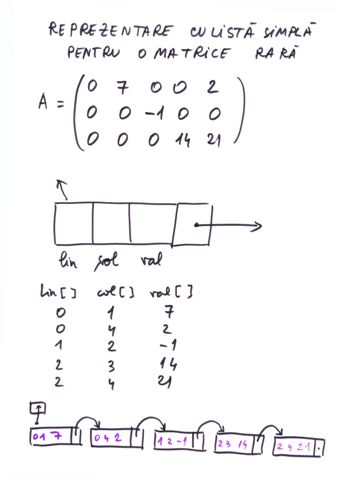 REPREZENTARE CU LISTĂ SIMPLĂ
PENTRU O MATRICE RARĂ
A = ( 0 7 0 0 2
0 0 -1 0 0
0 0 0 14 21 )
lin col val
lin[] col[] val[]
0 1 7
0 4 2
1 2 -1
2 3 14
2 4 21
0 1 7 0 4 2 1 2 -1 2 3 14 2 4 21